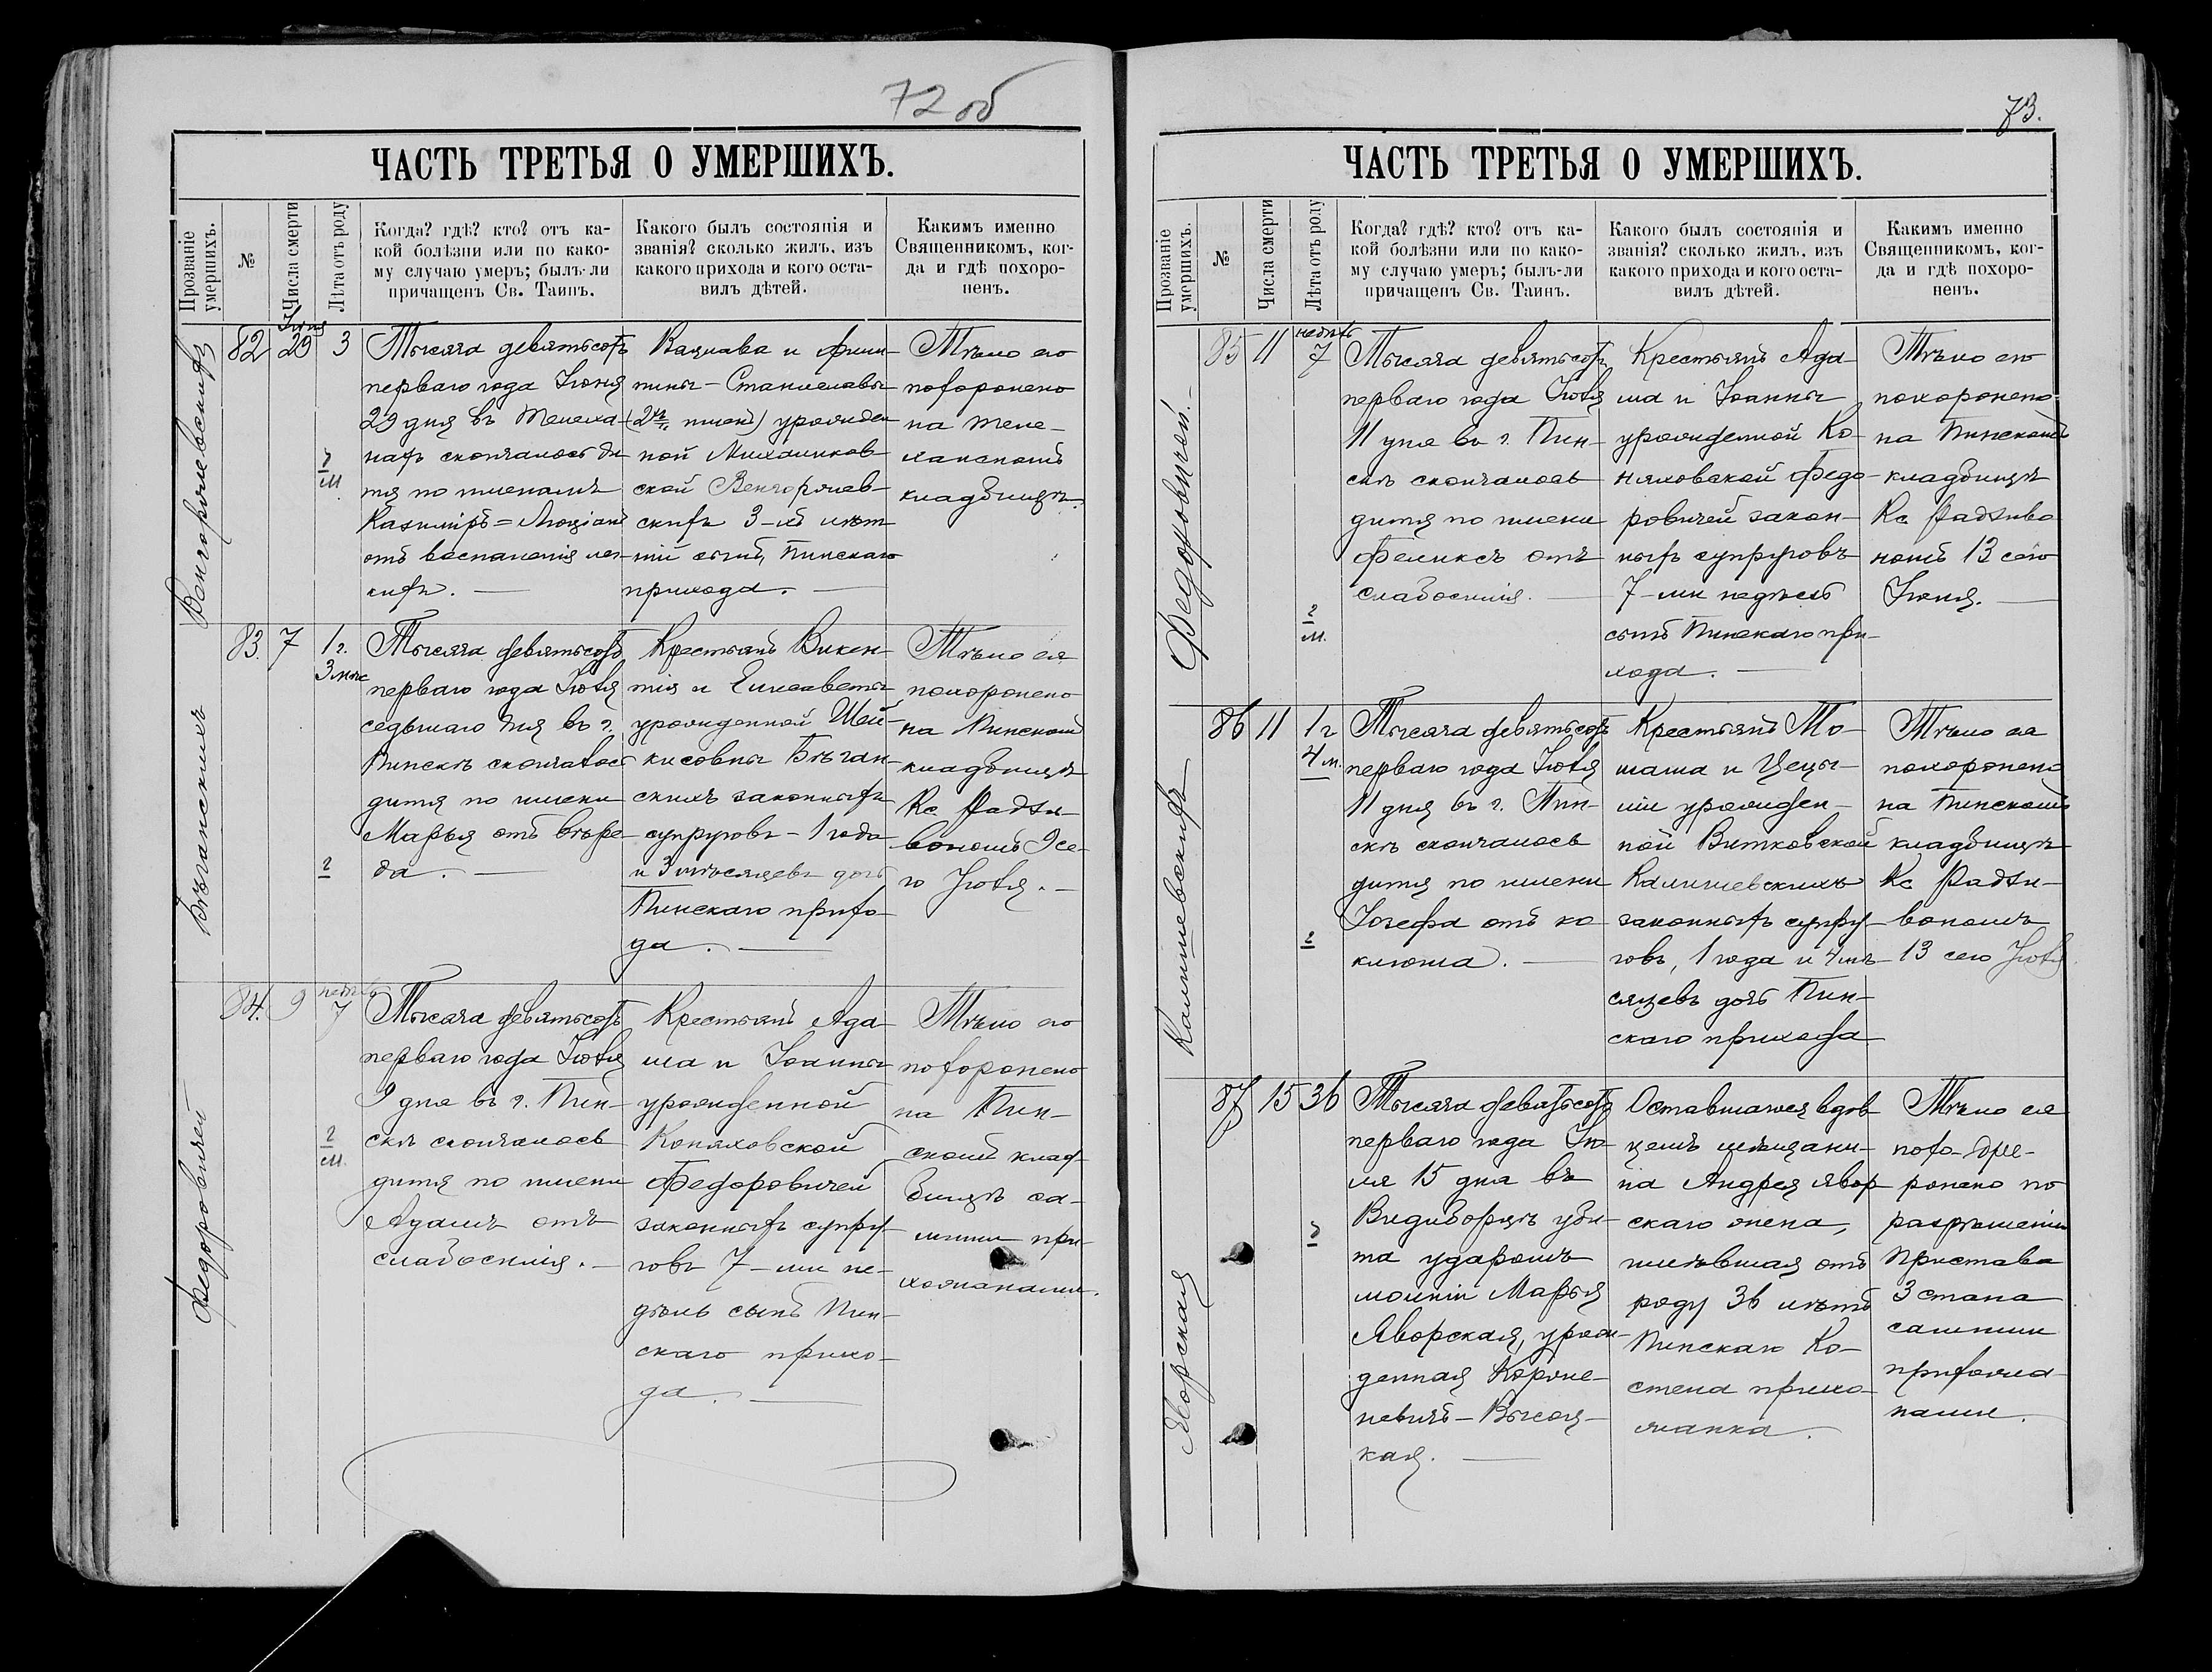 72 об
ЧАСТЬ ТРЕТЬЯ О УМЕРШИХЪ.
Прозваніе умершихъ.
№
Числа смерти
Лѣта отъ роду
Когда? гдѣ? кто? отъ ка-
кой болѣзни или по како-
му случаю умеръ; былъ-ли
причащенъ Св. Таинъ.
Какого былъ состоянія и
званія? сколько жилъ, изъ
какого прихода и кого оста-
вилъ дѣтей.
Какимъ именно
Священникомъ, ког-
да и гдѣ похоро-
ненъ.
82
29
3
Тысяча девятьсотъ
перваго года Іюня
29 дня въ Телеха-
нахъ скончалось ди-
тя по именамъ
Казиміръ=Люціанъ
отъ воспаленія лег-
кихъ.
Вацлава и Фили-
пины-Станиславы
(2хъ именъ) урожден-
ной Михаликов-
ской
скихъ 3-хъ лѣт-
ній сынъ, Пинскаго
прихода.
Тѣло его
похоронено
на Теле-
ханскомъ
кладбищѣ.
83.
7
1 г.
3 мѣс
Тысяча девятьсотъ
перваго года Іюля
седьмаго дня въ г.
Пинскѣ скончалось
дитя по имени
Марья отъ
да.
Крестьянъ Викен-
тія и Елисаветы
урожденной Шей-
кисовны Бѣган-
скихъ законныхъ
супруговъ - 1 года
и 3 мѣсяцевъ дочь
Пинскаго прихо-
да.
Тѣло ея
похоронено
на Пинскомъ
кладбищѣ
Кс. Радзи-
вономъ 9 се-
го Іюля.
Бѣганскихъ
84.
9
недѣль
7
Тысяча девятьсотъ
перваго года Іюля
9 дня въ г. Пин-
скѣ скончалось
дитя по имени
Адамъ отъ
слабосилія.
Крестьянъ Ада-
ма и Іоанны
урожденной
Коняховской
Федоровичей
законныхъ супру-
говъ 7-ми не-
дѣль сынъ Пин-
скаго прихо-
да.
Тѣло его
похоронено
на Пин-
скомъ клад-
бищѣ са-
мими при-
хожанами.
Федоровичей
73.
ЧАСТЬ ТРЕТЬЯ О УМЕРШИХЪ.
Прозваніе умершихъ.
№
Числа смерти
Лѣта отъ роду
Когда? гдѣ? кто? отъ ка-
кой болѣзни или по како-
му случаю умеръ; былъ-ли
причащенъ Св. Таинъ.
Какого былъ состоянія и
званія? сколько жилъ, изъ
какого прихода и кого оста-
вилъ дѣтей.
Какимъ именно
Священникомъ, ког-
да и гдѣ похоро-
ненъ.
Федоровичей.
85
11
недѣль
7
Тысяча девятьсотъ
перваго года Іюля
11 дня въ г. Пин-
скѣ скончалось
дитя по имени
Феликсъ отъ
слабосилія.
Крестьянъ Ада-
ма и Іоанны
урожденной Ко-
няховской Федо-
ровичей закон-
ныхъ супруговъ
7-ми недѣль
сынъ Пинскаго при-
хода.
Тѣло его
похоронено
на Пинскомъ
кладбищѣ
Кс. Радзиво
номъ 13 сего
Іюля.
Калишевскихъ
86
11
1 г
4 м.
Тысяча девятьсотъ
перваго года Іюля
11 дня въ г. Пин-
скѣ скончалось
дитя по имени
Іозефа отъ ко
клюша.
Крестьянъ То-
маша и Цецы-
ліи урожден-
ной Витковской
Калишевскихъ
законныхъ супру-
говъ, 1 года и 4 мѣ-
сяцевъ дочь Пин-
скаго прихода
Тѣло ея
похоронено
на Пинскомъ
кладбищѣ
Кс. Радзи-
вономъ
13 сего Іюля
Яворская
87
15
36
Тысяча девятьсотъ
перваго года Ію-
ля 15 дня въ
Видиборцѣ уби-
та ударомъ
молніи Марья
Яворская, урож-
денная
кая.
Оставшагося вдов-
цемъ мѣщани-
на Андрея Явор
скаго жена,
имѣвшая отъ
роду 36 лѣтъ
Пинскаго Ко-
стела прихо-
жанка.
Тѣло ея
похо-
ронено по
разрѣшенію
Пристава
3 стана
самими
прихожа-
нами.